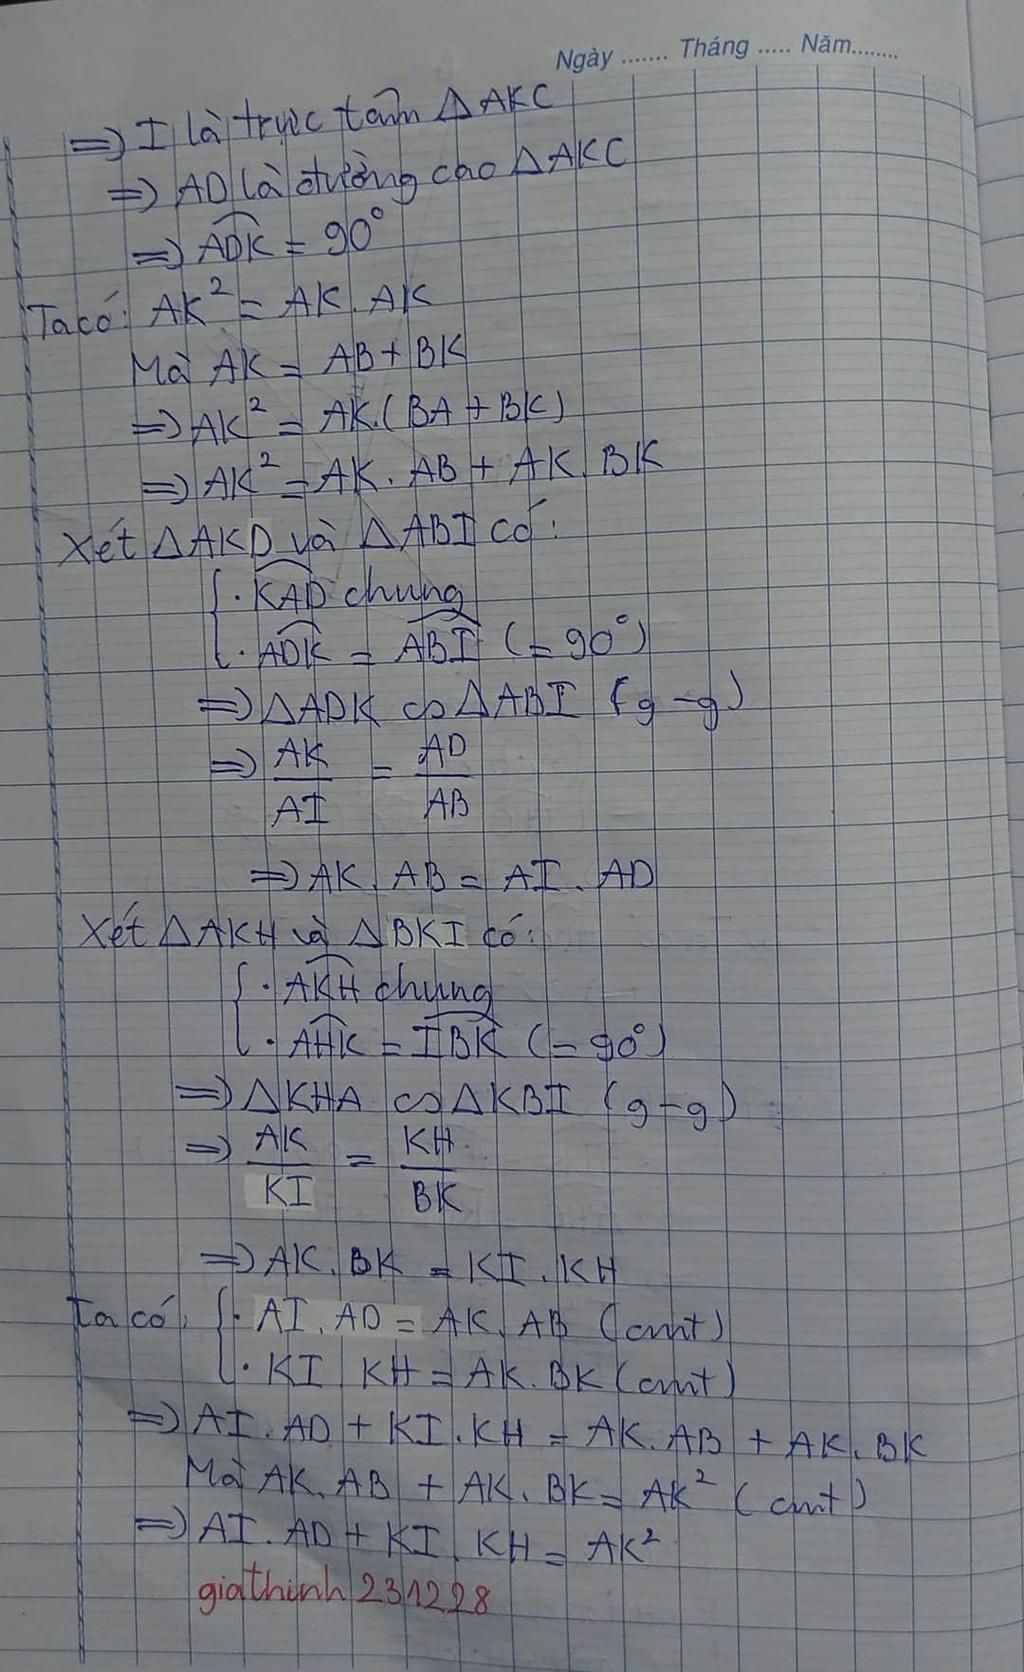 Ngày ....... Tháng ..... Năm........
=> I là trực tâm △AKC
=> AD là đường cao △AKC
=> ADK = 90°
Ta có: AK² = AK. AK
Mà AK = AB + BK
=> AK² = AK.(BA + BK)
=> AK² = AK. AB + AK. BK
Xét △AKD và △ABI có:
{ · KAD chung
· ADK = ABI (= 90°)
=> △ADK ∽ △ABI (g-g)
=> AK/AI = AD/AB
=> AK. AB = AI. AD
Xét △AKH và △BKI có:
{ · AKH chung
· AHK = IBK (= 90°)
=> △KHA ∽ △KBI (g-g)
=> AK/KI = KH/BK
=> AK. BK = KI. KH
Ta có: { · AI. AD = AK. AB (cmt)
· KI. KH = AK. BK (cmt)
=> AI. AD + KI. KH = AK. AB + AK. BK
Mà AK. AB + AK. BK = AK² (cmt)
=> AI. AD + KI. KH = AK²
giathinh231228